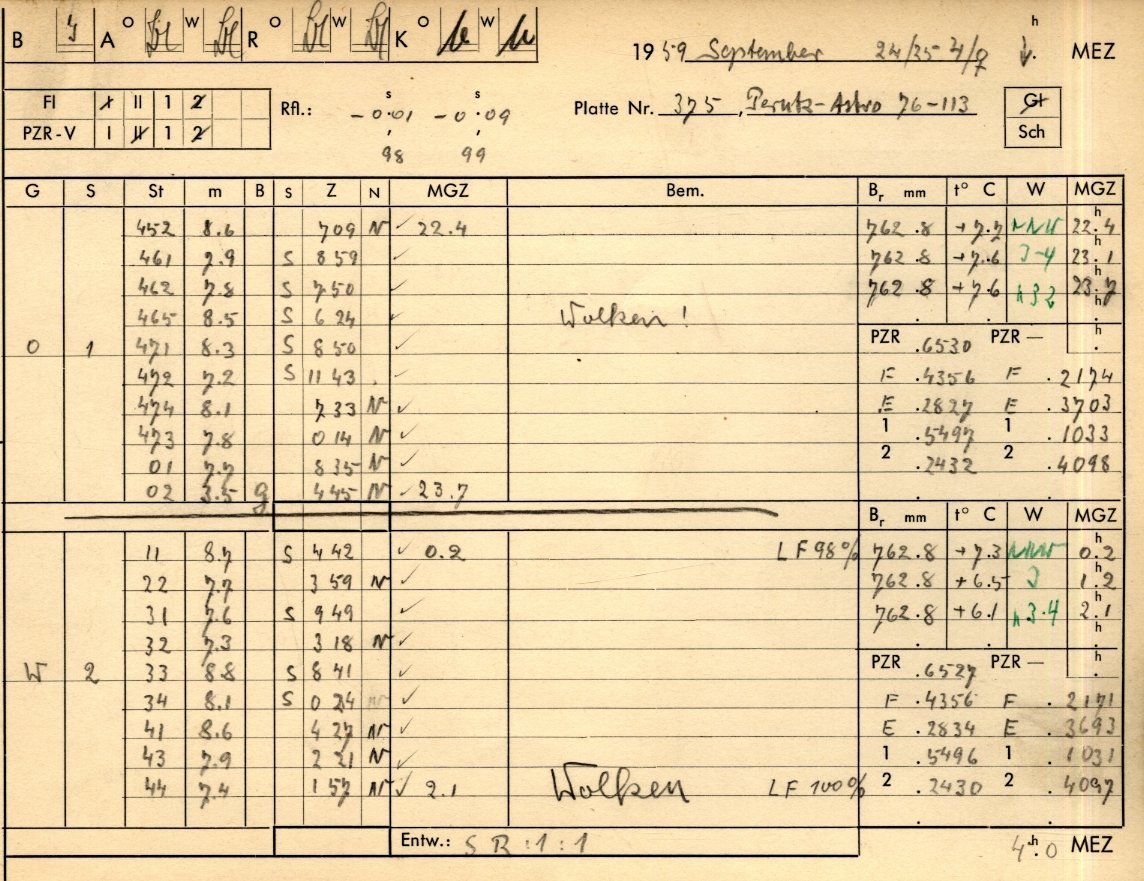 B A O W R O W K O W
1959 September 24/25 ♃/♀ h MEZ
Fl I II 1 2
PZR-V I II 1 2
Rfl.: -0.01 s -0.09 s
98 99
Platte Nr. 375, Perutz-Astro 76-113
Gl
Sch
G S St m B S Z N MGZ Bem. Br mm t° C W MGZ
452 8.6 709 N ✓ 22.4 762.8 +7.7 NNW 22.4 h
461 7.9 S 859 ✓ 762.8 +7.6 3-4 23.1 h
462 7.8 S 750 ✓ 762.8 +7.6 23.7 h
465 8.5 S 624 ✓ Wolken!
O 1 471 8.3 S 850 ✓ PZR .6530 PZR — h
472 7.2 S 1143 F .4356 F .2174
474 8.1 733 N ✓ E .2827 E .3703
473 7.8 014 N ✓ 1 .5497 1 .1033
01 7.7 835 N ✓ 2 .2432 2 .4098
02 3.5 g 445 N ✓ 23.7
Br mm t° C W MGZ
11 8.7 S 442 ✓ 0.2 LF 98% 762.8 +7.3 NNW 0.2 h
22 7.7 359 N ✓ 762.8 +6.5 3 1.2 h
31 7.6 S 949 ✓ 762.8 +6.1 3.4 2.1 h
32 7.3 318 N ✓ h
W 2 33 8.8 S 841 ✓ PZR .6527 PZR — h
34 8.1 S 024 ✓ F .4356 F .2171
41 8.6 427 N ✓ E .2834 E .3693
43 7.9 221 N ✓ 1 .5496 1 .1031
44 7.4 157 N ✓ 2.1 Wolken LF 100% 2 .2430 2 .4097
Entw.: SR:1:1 4.0 h MEZ